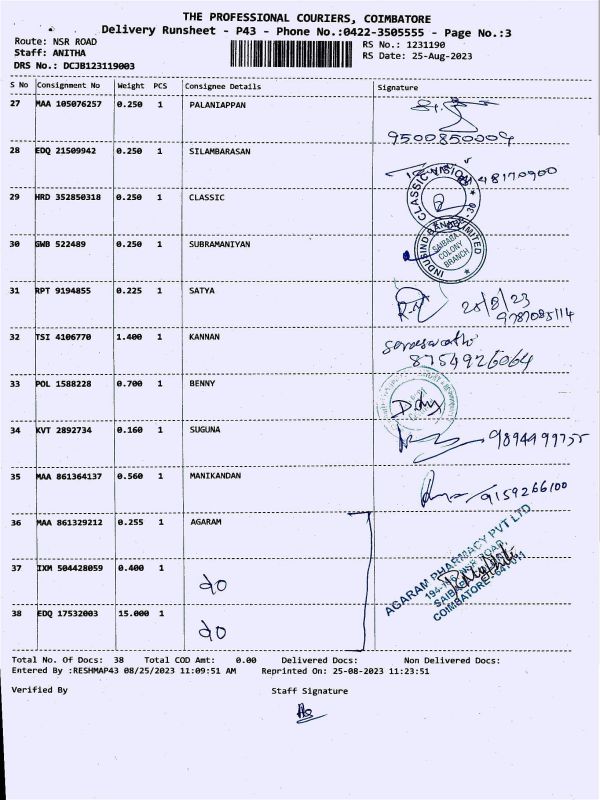 THE PROFESSIONAL COURIERS, COIMBATORE
Delivery Runsheet - P43 - Phone No.:0422-3505555 - Page No.:3
Route: NSR ROAD RS No.: 1231190
Staff: ANITHA RS Date: 25-Aug-2023
DRS No.: DCJB123119003
S No Consignment No Weight PCS Consignee Details Signature
27 MAA 105076257 0.250 1 PALANIAPPAN
9500850009
28 EDQ 21509942 0.250 1 SILAMBARASAN
48170900
29 HRD 352850318 0.250 1 CLASSIC CLASSIC VISION
30 GWB 522489 0.250 1 SUBRAMANIYAN INDUSIND BANK LIMITED
SAIBABA
COLONY
BRANCH
31 RPT 9194855 0.225 1 SATYA 25/8/23
9787085114
32 TSI 4106770 1.400 1 KANNAN saraswathi
8754926064
33 POL 1588228 0.700 1 BENNY
34 KVT 2892734 0.160 1 SUGUNA 9894499755
35 MAA 861364137 0.560 1 MANIKANDAN 9159266100
36 MAA 861329212 0.255 1 AGARAM AGARAM PHARMACY PVT LTD
37 IXM 504428059 0.400 1 do
38 EDQ 17532003 15.000 1 do
Total No. Of Docs: 38 Total COD Amt: 0.00 Delivered Docs: Non Delivered Docs:
Entered By :RESHMAP43 08/25/2023 11:09:51 AM Reprinted On: 25-08-2023 11:23:51
Verified By Staff Signature